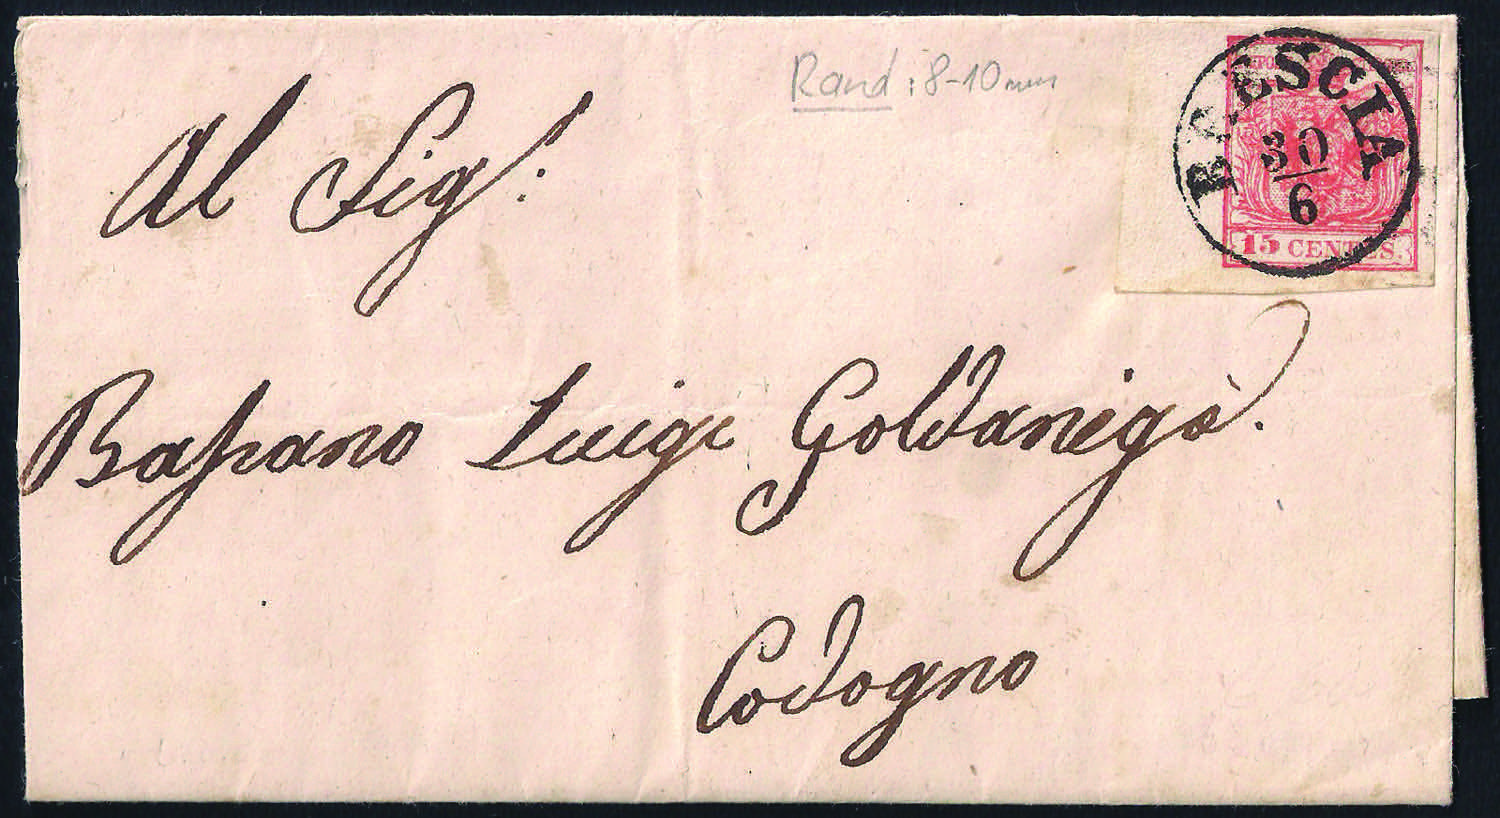 Rand: 8-10 mm
BRESCIA
30/6
15 CENTES.
Al Sigr:
Bassano Luigi Goldanigà.
Codogno